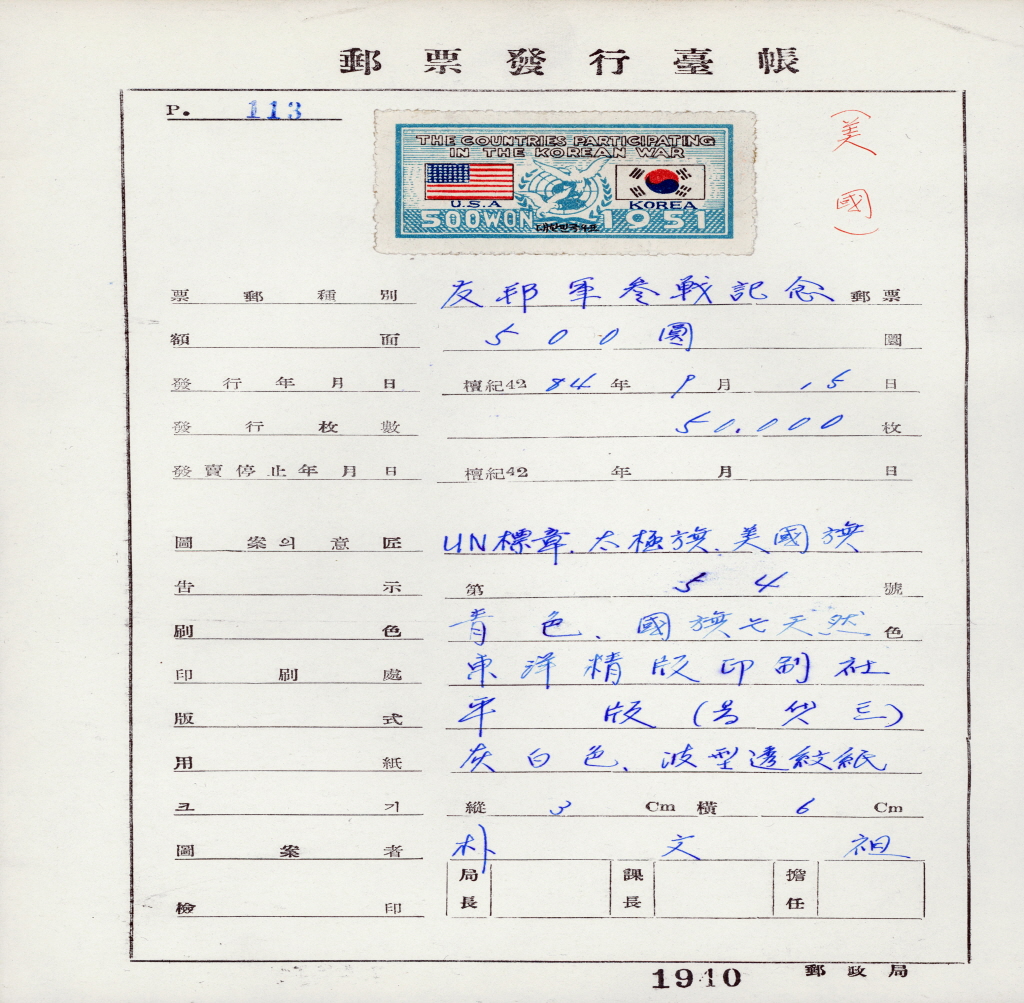 郵票發行臺帳
P. 113
THE COUNTRIES PARTICIPATING
IN THE KOREAN WAR
U.S.A KOREA
500WON 1951
대한민국우표
(美國)
票郵種別 友邦軍參戰記念 郵票
額面 500圓 圜
發行年月日 檀紀4284年 9月 15日
發行枚數 50.000 枚
發賣停止年月日 檀紀42 年 月 日
圖案의意匠 UN標章、太極旗、美國旗
告示 第 54 號
刷色 青色、國旗七天然色
印刷處 東洋精版印刷社
版式 平版
用紙 灰白色、波型透紋紙
크기 縱 3 Cm 橫 6 Cm
圖案者 朴文祖
檢印 局長 課長 擔任
1910 郵政局